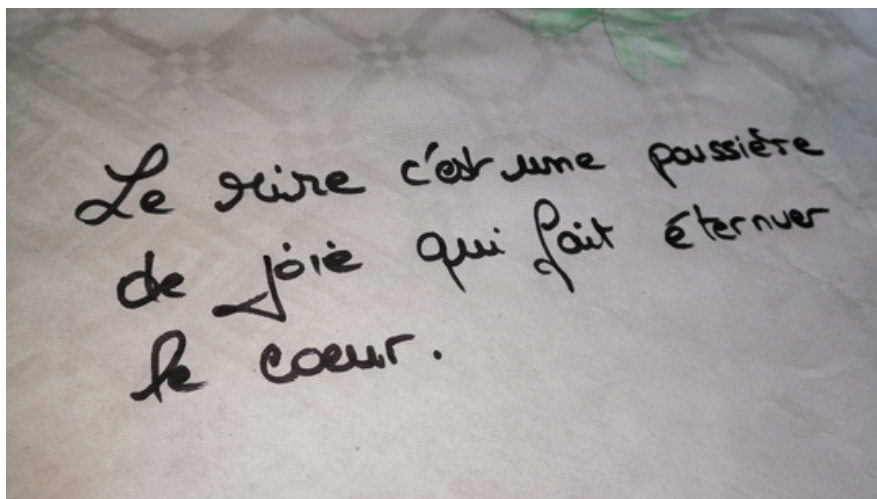 Le rire c'est une poussière
de joie qui fait éternuer
le coeur.